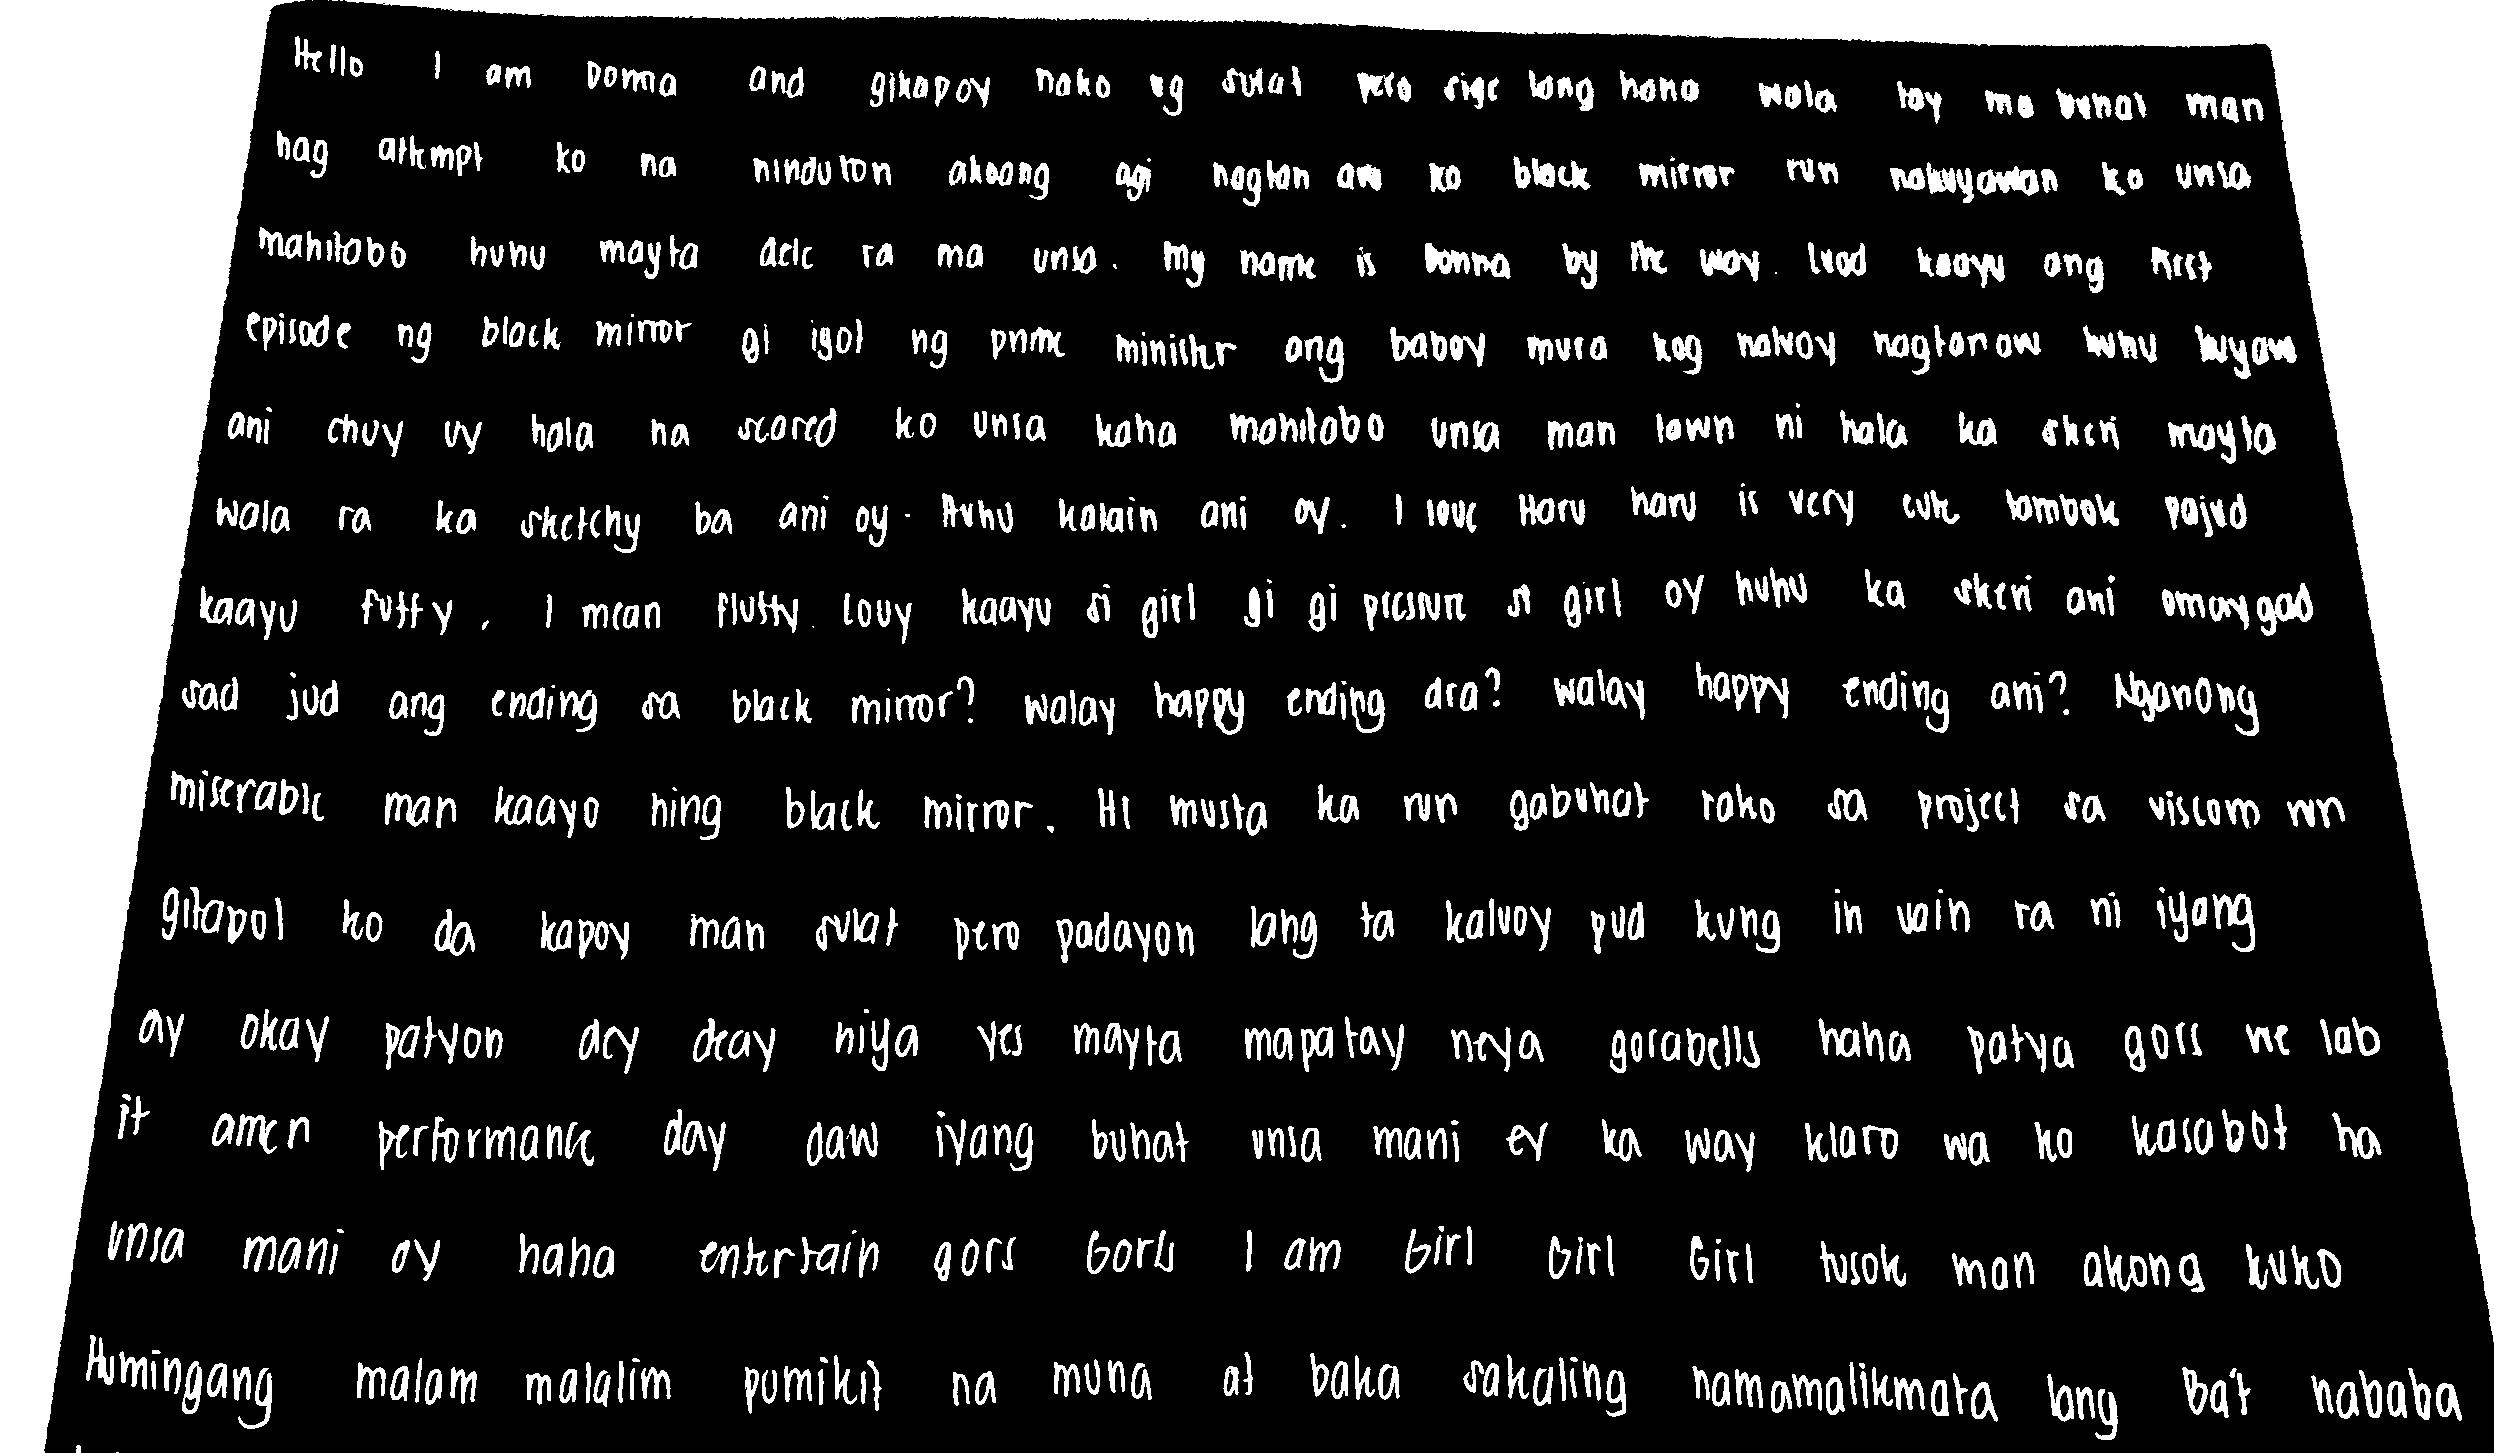 Hello I am Donna and gikapoy nako ug sulat pero sige lang haha wala toy ma buhat man
nag attempt ko na ninduton akoang agi nagtan aw ko black mirror run nakuyawan ko unsa
mahitabo huhu mayta dele ra ma unsa. My name is Donna by the way. Luod kaayu ang first
episode ng black mirror gi igot ng prime minister ang baboy mura kog naluoy nagtanaw huhu kuyaw
ani chuy uy hala na scared ko unsa kaha mahitabo unsa man lawn ni hala ka skeri mayta
wala ra ka sketchy ba ani oy. Huhu kalain ani oy. I love Haru haru is very cute tambok pajud
kaayu fuffy, I mean fluffy. Louy kaayu si girl gi gi pressure si girl oy huhu ka skeri ani omaygad
sad jud ang ending sa black mirror? walay happy ending dra? walay happy ending ani? Nganong
miserable man kaayo ning black mirror. Hi musta ka run gabuhat rako sa project sa viscom run
gitapol ko da kapoy man sulat pero padayon lang ta kaluoy pud kung in vain ra ni iyang
ay okay patyon dey deay niya yes mayta mapatay neya gorabells haha patya gors we lab
it amen performance day daw iyang buhat unsa mani ey ka way klaro wa ko kasabot ha
unsa mani oy haha entertain gors Gorls I am Girl Girl Girl tusok man akong kuko
Humingang malam malalim pumikit na muna at baka sakaling namamalikmata lang Ba't nababa